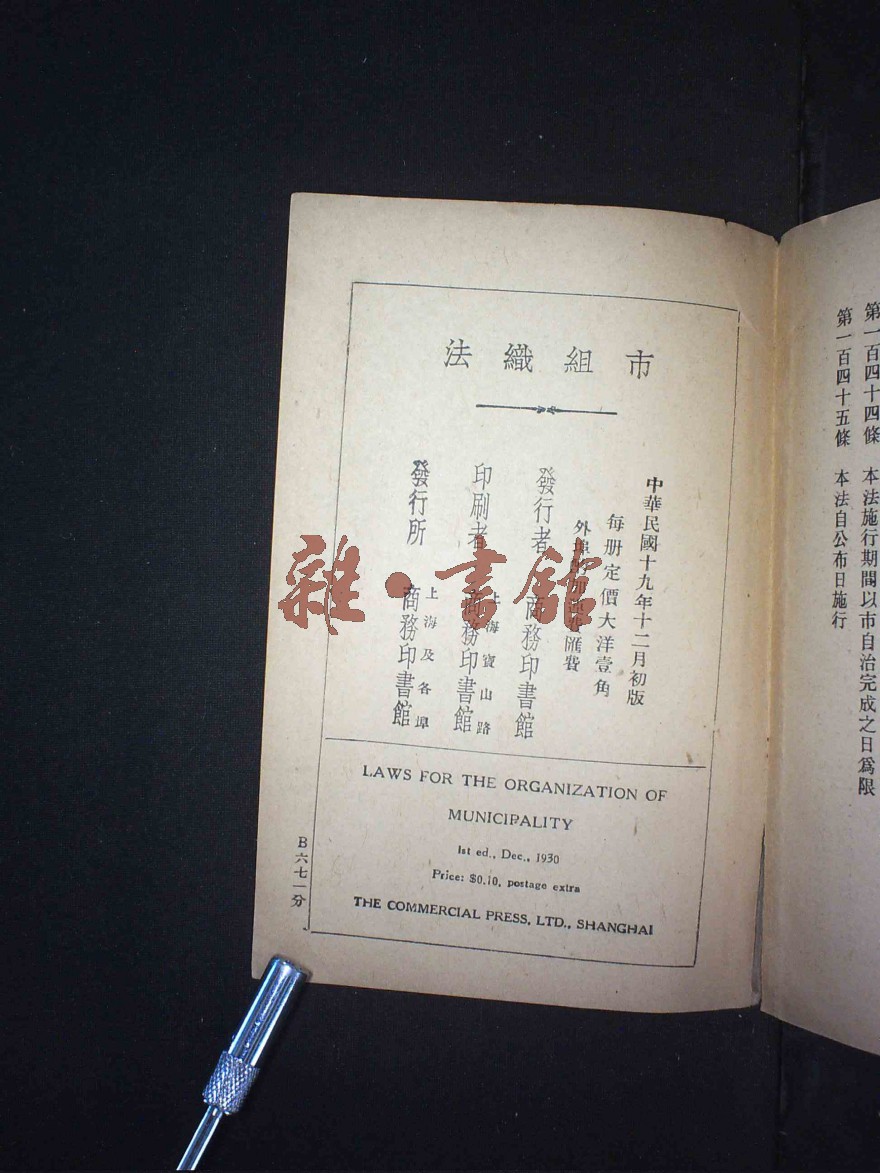 第一百四十四條 本法施行期間以市自治完成之日爲限
第一百四十五條 本法自公布日施行
市組織法
中華民國十九年十二月初版
每册定價大洋壹角
外埠酌加運費匯費
發行者 商務印書館
印刷者 上海寶山路 商務印書館
發行所 上海及各埠 商務印書館
LAWS FOR THE ORGANIZATION OF
MUNICIPALITY
1st ed., Dec., 1930
Price: $0.10, postage extra
THE COMMERCIAL PRESS, LTD., SHANGHAI
B六七一分
雜·書館